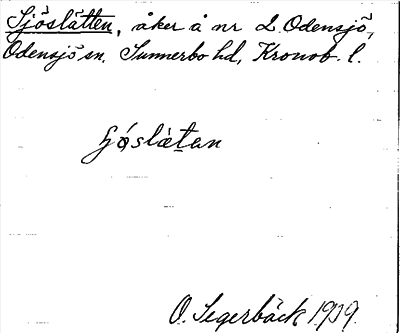 Sjöslätten, åker å nr 2 Odensjö,
Odensjö sn, Sunnerbo hd, Kronob. l.
O. Segerbäck 1939.